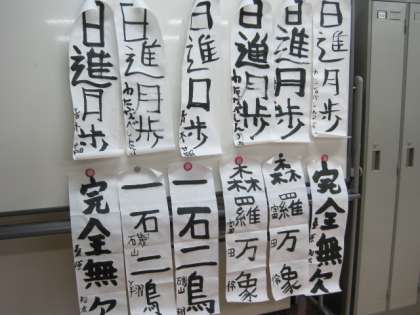 日進月歩
日進月歩
日進口歩
日進月歩
日進月歩
日進月歩
完全無欠
一石二鳥
一石二鳥
森羅万象
森羅万象
完全無欠